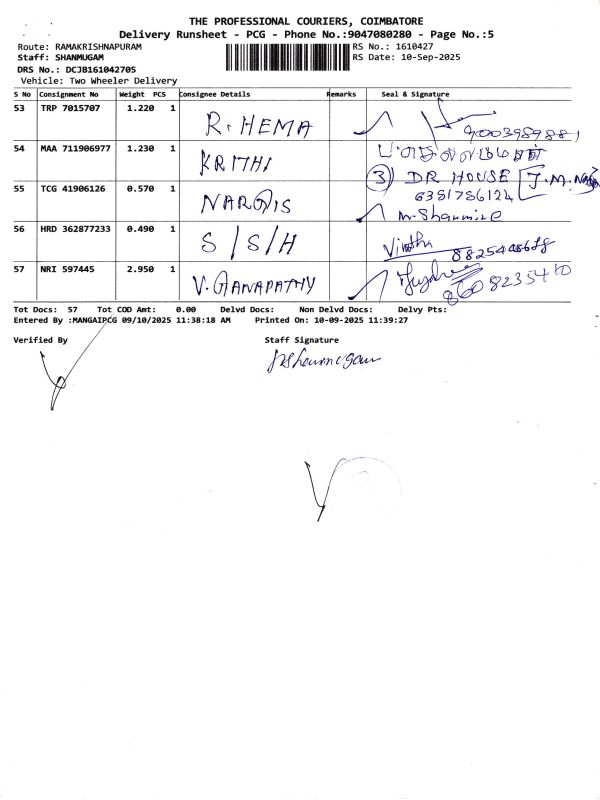 THE PROFESSIONAL COURIERS, COIMBATORE
Delivery Runsheet - PCG - Phone No.:9047080280 - Page No.:5
Route: RAMAKRISHNAPURAM RS No.: 1610427
Staff: SHANMUGAM RS Date: 10-Sep-2025
DRS No.: DCJB161042705
Vehicle: Two Wheeler Delivery
S No Consignment No Weight PCS Consignee Details Remarks Seal & Signature
53 TRP 7015707 1.220 1 R. HEMA 9003989881
54 MAA 711906977 1.230 1 KRITHI
3 DR HOUSE
55 TCG 41906126 0.570 1 NARGIS 6381786124
56 HRD 362877233 0.490 1 S/S/H
57 NRI 597445 2.950 1 V. GANAPATHY
Tot Docs: 57 Tot COD Amt: 0.00 Delvd Docs: Non Delvd Docs: Delvy Pts:
Entered By :MANGAIPCG 09/10/2025 11:38:18 AM Printed On: 10-09-2025 11:39:27
Verified By Staff Signature